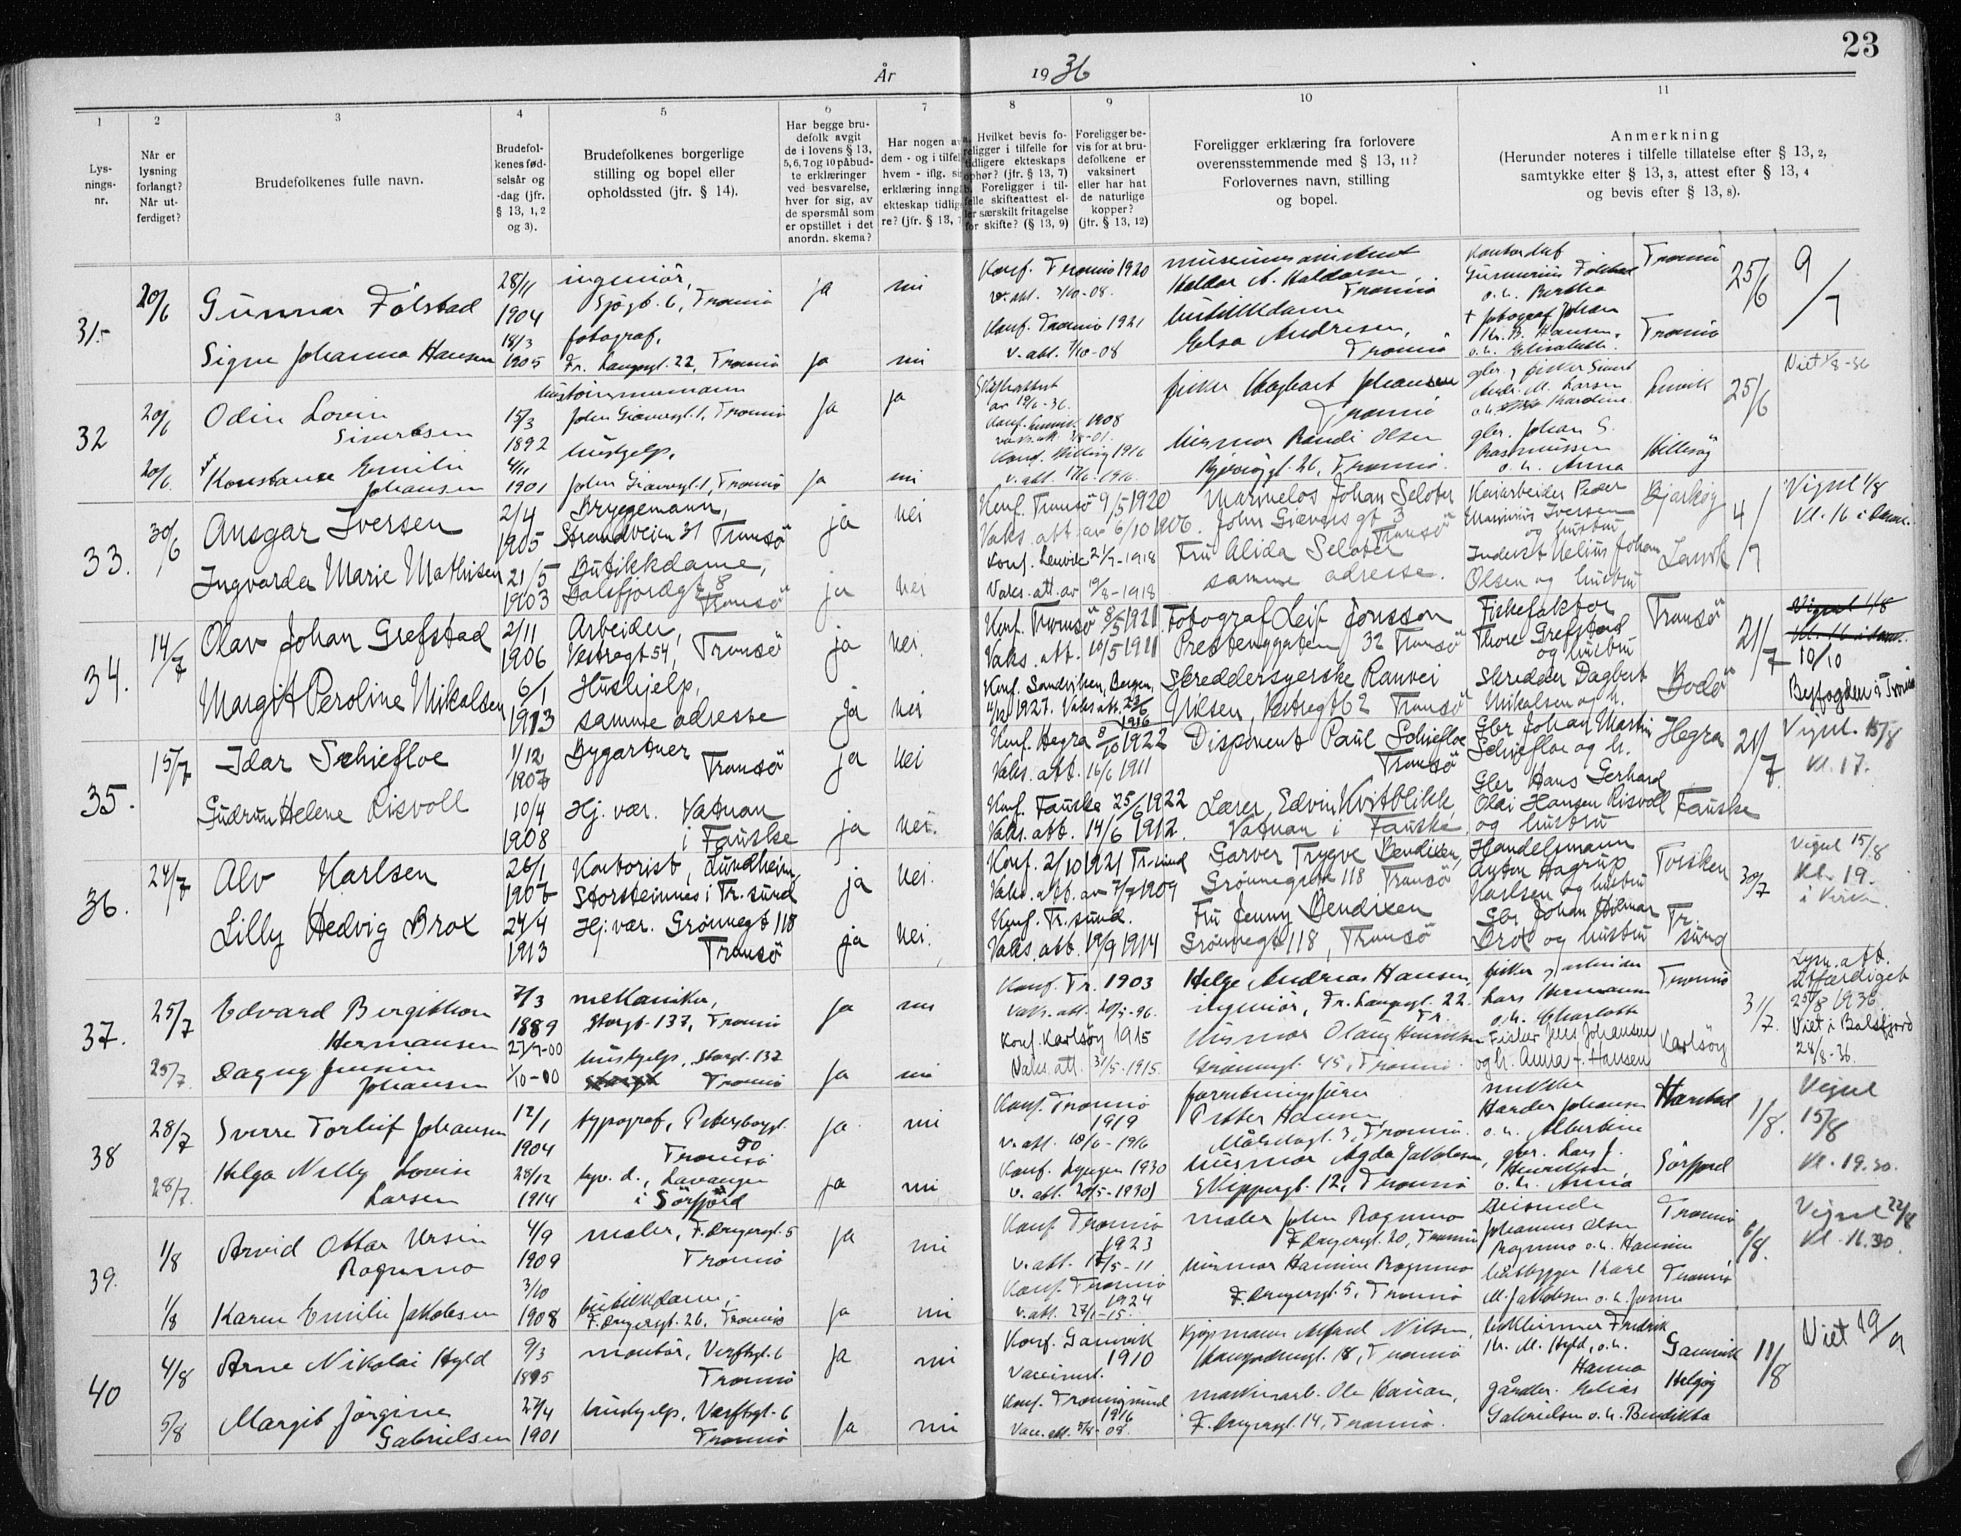 23
År 1936
1 2 3 4 5 6 7 8 9 10 11
Lys-
nings-
nr.
Når er
lysning
forlangt?
Når ut-
ferdiget?
Brudefolkenes fulle navn.
Brudefol-
kenes fød-
selsår og
-dag (jfr.
§ 13, 1, 2
og 3).
Brudefolkenes borgerlige
stilling og bopel eller
opholdssted (jfr. § 14).
Har begge bru-
defolk avgit
de i lovens § 13,
5, 6, 7 og 10 påbud-
te erklæringer
ved besvarelse,
hver for sig, av
de spørsmål som
er opstillet i det
anordn. skema?
Har nogen av
dem - og i tilfel
hvem - iflg. si
erklæring inngå
ekteskap tidlig
re? (jfr. § 13, 7
Hvilket bevis fo-
religger i tilfelle for
tidligere ekteskaps
ophør? (jfr. § 13, 7)
Foreligger i til-
felle skifteattest el-
ler særskilt fritagelse
for skifte? (§ 13, 9)
Foreligger be-
vis for at bru-
defolkene er
vaksinert
eller har hat
de naturlige
kopper?
(jfr. § 13, 12)
Foreligger erklæring fra forlovere
overensstemmende med § 13, 11?
Forlovernes navn, stilling
og bopel.
Anmerkning
(Herunder noteres i tilfelle tillatelse efter § 13, 2,
samtykke efter § 13, 3, attest efter § 13, 4
og bevis efter § 13, 8).
31 20/6 Gunnar Fölstad 28/11 1904 ingeniör, Sjögt. 6, Tromsö ja nei Konf. Tromsö 1920 Tromsö 25/6 9/7
Signe Johanna Hansen 18/3 1905 fotograf, Fr. Langesgt. 22, Tromsö ja nei Konf. Tromsö 1921 v. att. 7/10-08 Elsa Andresen, Tromsö Tromsö
32 20/6 Odin Lovin Sivertsen 15/3 1892 John Giæversgt. 1, Tromsö ja ja Skifteattest av 19/6-36. fisker Hagbart Johansen Tromsö Lenvik 25/6 Viet 1/8-36
20/6 Konstanse Emilie Johansen 4/11 1901 hushjelp, John Giæversgt. 1, Tromsö ja nei husmor Randi Olsen Tromsö. gbr. Johan S. Rasmussen o. h. Anna Hillesöy
33. 30/6 Ansgar Iversen 2/4 1905 Bryggemann, Strandveien 31 Tromsö ja nei Konf. Tromsö 9/5 1920 Vaks. att. av 6/10 1906. Johan Seloter John Giævers gt 3 Tromsö Iversen og hustru Bjarköy 4/7 Vigsel 1/8 Kl. 16 i
Ingvarda Marie Mathisen 21/5 1903 Butikkdame, Balsfjordgt. 8 Tromsö ja nei Konf. Lenvik 21/7-1918 Vaks. att. av 19/8-1918 Fru Alida Seloter samme adresse. Johan Olsen og hustru Lenvik
34. 14/7 Olav Johan Grefstad 2/11 1906 Arbeider, Vestregt 54, Tromsö ja nei. Konf. Tromsö 8/5 1921. Vaks. att. 10/5 1911 Fotograf Leif Jonsson Prestenggaten 32 Tromsö Fiskefaktor Thore Grefstad og hustru Tromsö 21/7 Vigsel 1/8 10/10 Byfogden i Tromsö
Margit Peroline Nikolsen 6/1 1913 Hushjelp, samme adresse ja nei Konf. Sandviken, Bergen, 1927. Vaks. att. 23/6 1916 Skreddersyerske Ranvei Nilsen, Vestregt 62 Tromsö Skredder Dagbert Nikolsen og h. Bodö
35. 15/7 Idar Schiefloe 1/12 1907 Bygartner Tromsö ja nei Konf. Hegra 8/10 1922 Vaks. att. 16/6 1911 Disponent Paul Schiefloe Tromsö Gbr Johan Martin Schiefloe og h. Hegra 21/7. Vigsel. 15/8 Kl. 17.
Gudrun Helene Risvoll 10/4 1908 Hj. vær. Vatnan i Fauske ja nei. Konf. Fauske 25/6 1922 Vaks. att. 14/6 1912. Lærer Edvin Kvitblikk Vatnan i Fauske Gbr Hans Gerhard Olai Hansen Risvoll og hustru Fauske
36. 24/7 Alv Karlsen 26/1 1907 Kontorist, Lundheim, Storsteinnes i Tr. sund ja nei. Konf. 2/10 1921 Tr. sund Vaks. att. av 7/9 1909 Garver Trygve Bendixen, Grönnegate 118 Tromsö Handelsmann Anton Hagrup Karlsen og hustru Torsken 30/7 Vigsel 15/8 Kl. 19. i Kirken
Lilly Hedvig Brox 24/4 1913 Hj. vær. Grönnegt 118 Tromsö ja nei. Konf. Tr. sund. Vaks. att. 19/9 1914 Fru Jenny Bendixen Grönnegt 118, Tromsö Gbr Johan Hilmar Brox og hustru Tr. sund
37. 25/7 Edvard Bergithon Hermansen 7/3 1889 mekaniker, Storgt. 137, Tromsö ja nei Konf. Tr. 1903 Vaks. att. 20/5-96. Helge Andreas Hansen, ingeniör, Fr. Langesgt. 22. Tr. fisker og arbeider Lars Hermann o. h. Charlotte Tromsö 31/7. Lysn. att. utferdiget 25/8 1936 Viet i Balsfjord 28/8-36.
25/7. Dagny Jensin Johansen 27/9-00 1/10-00 hushjelp, Storgt. 137 Tromsö ja nei Konf. Karlsöy 1915 Vaks. att. 31/5-1915. Grönnegt. 45, Tromsö. Fisker Jens Johansen og h. Anna f. Hansen Karlsöy
38 28/7 Sverre Torleif Johansen 12/1 1904 typograf, Tromsö ja. nei Konf. Tromsö 1919 v. att. 10/6-1916 forretningsförer Petter Hansen 3, Tromsö. Harder Johansen o. h. Albertine Harstad 1/8. Vigsel 15/8 Kl. 19.30.
28/7. Helga Nelly Lovise Larsen 28/12 1914 Lavangen i Sörfjord ja nei Konf. Lyngen 1930 v. att. 20/5-1930 husmor Agda Jakobsen, Skippergt. 12, Tromsö gbr. Lars J. Henriksen, o. h. Anna Sörfjord
39. 1/8 Arvid Ottar Ursin Rognmo 4/9 1909 maler, F. Langesgt. 5 Tromsö ja nei Konf. Tromsö 1923 maler John Rognmo Tromsö Johannes Olsen Rognmo o. h. Hansine Tromsö 6/8. Vigsel 22/8 Kl. 16.30.
1/8 Karen Emilie Jakobsen 3/10 1908 butikkdame, Tromsö ja nei Konf. Tromsö 1924 husmor Hansine Rognmo 5, Tromsö båtbygger Karl M. Jakobsen o. h. Tromsö
40 4/8 Arne Nikolai Hyld 9/3 1895 montör, Verftsgt. 6 Tromsö ja nei Konf. Gamvik 1910 Vaccinert. kjöpmann Alfred Nilsen, 18, Tromsö Fredrik M. Hyld, o. h. Hanna Gamvik 11/8 Viet 19/9
5/8 Margit Jörgine Gabrielsen 27/4 1901 hushjelp, Verftsgt. 6 Tromsö ja nei Konf. Tromsöysund 1916 maskinarb. Ole 14, Tromsö. Elias Gabrielsen o. h. Bendikta Helgöy